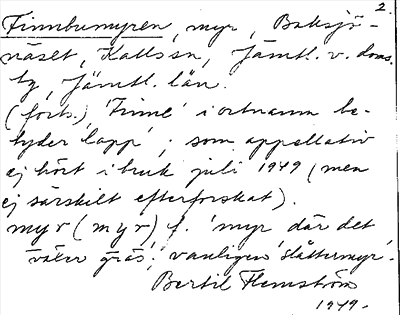 2.
Finnbumyren, myr, Baksjö-
näset, Kalls sn, Jämtl. v. doms.
tg, Jämtl. län.
(forts.) 'Finne' i ortnamn be-
tyder 'lapp'; som appellativ
ej hört i bruk juli 1949 (men
ej särskilt efterforskat).
myr (myr) f. 'myr där det
växer gräs'; vanligen 'slåttermyr'.
Bertil Flemström
1949.